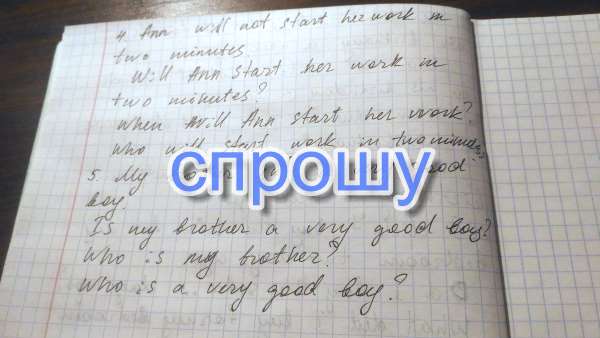 4. Ann will not start her work in
two minutes
Will Ann start her work in
two minutes?
When will Ann start her work?
Who will start work in two minutes
спрошу
5. My good
boy
Is my brother a very good boy?
Who is my brother?
Who is a very good boy?